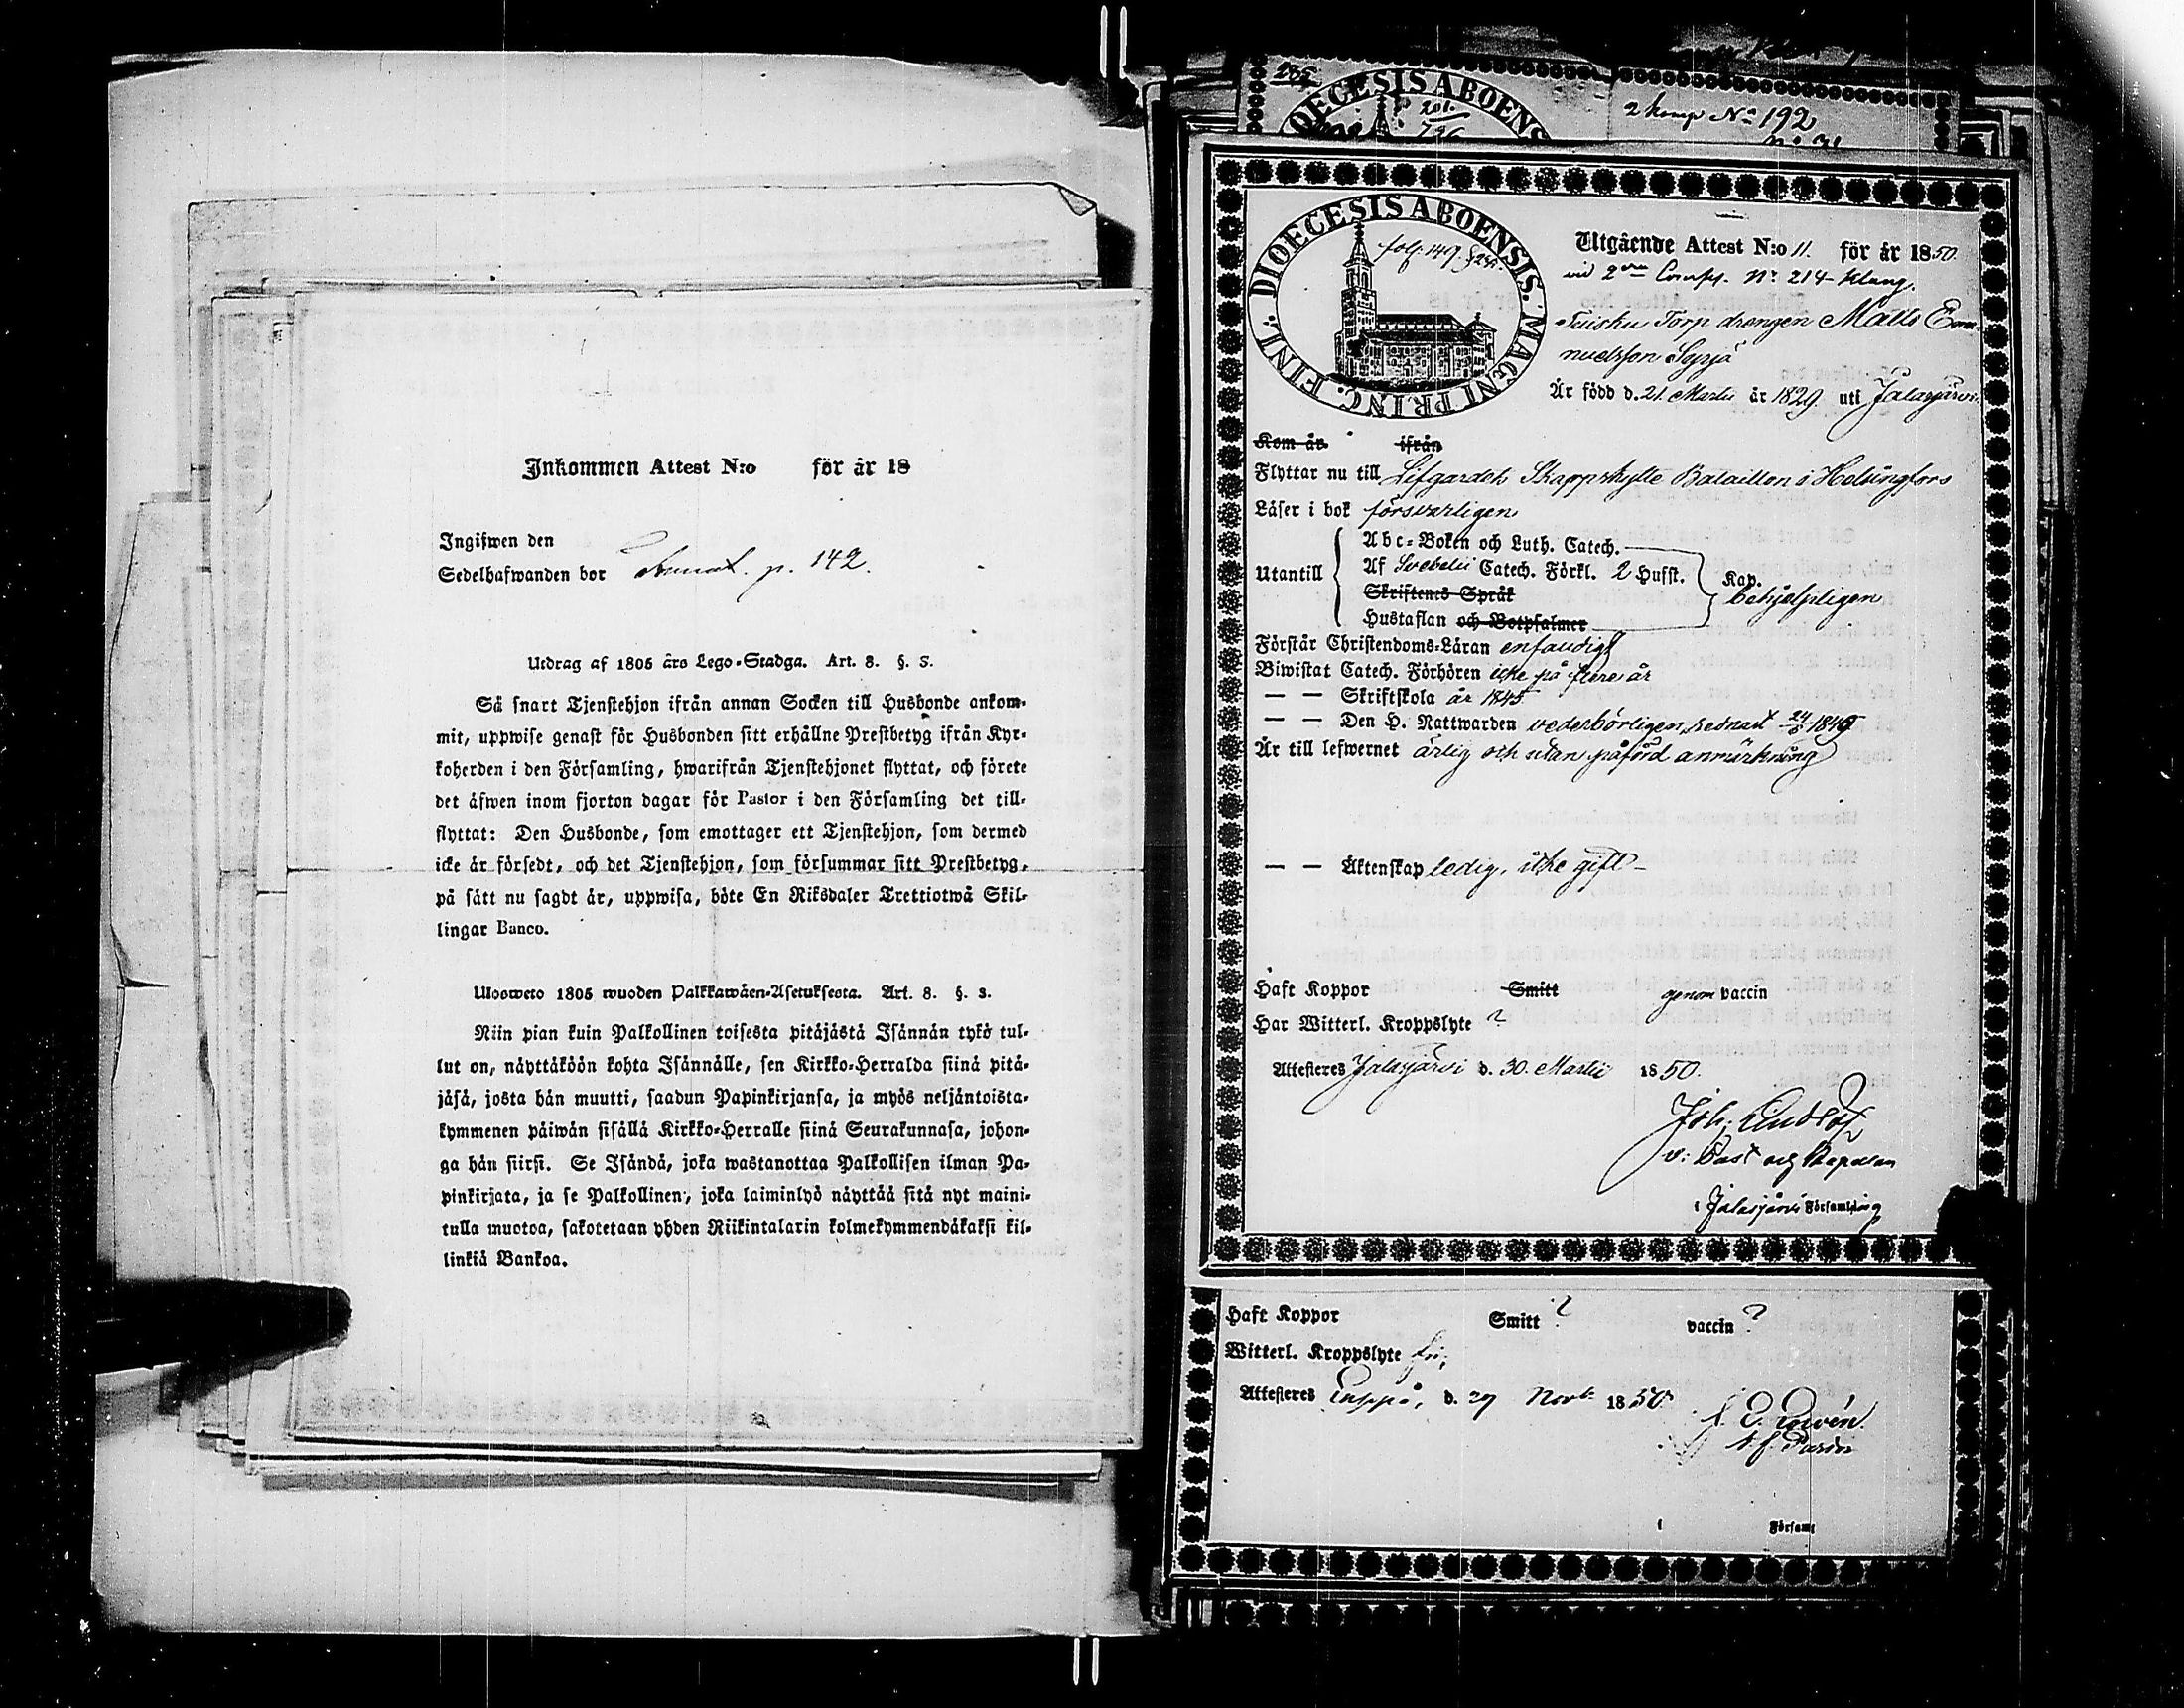 Inkommen Attest N:o för år 18
Ingifwen den
Sedelhafwanden bor p. 142.
Utdrag af 1805 års Lego-Stadga. Art. 8. §. 3.
Så snart Tjenstehjon ifrån annan Socken till Husbonde ankom-
mit, uppwise genast för Husbonden sitt erhållne Prestbetyg ifrån Kyr-
koherden i den Församling, hwarifrån Tjenstehjonet flyttat, och förete
det åfwen inom fjorton dagar för Pastor i den Församling det till-
flyttat: Den Husbonde, som emottager ett Tjenstehjon, som dermed
icke år försedt, och det Tjenstehjon, som försummar sitt Prestbetyg,
på sått nu sagdt år, uppwisa, böte En Riksdaler Trettiotwå Skil-
lingar Banco.
Ulosweto 1805 wuoden Palkkawåen-Asetuksesta. Art. 8. §. 3.
Niin pian kuin Palkollinen toisesta pitåjåstå Isånnån tykö tul-
lut on, nåyttåköön kohta Isånnålle, sen Kirkko-Herralda siinå pitå-
jåså, josta hån muutti, saadun Papinkirjansa, ja myös neljåntoista-
kymmenen påiwån sisållå Kirkko-Herralle siinå Seurakunnasa, johon-
ga hån siirsi. Se Isåndå, joka wastanottaa Palkollisen ilman Pa-
pinkirjata, ja se Palkollinen, joka laiminlyö nåyttåå sitå nyt maini-
tulla muotoa, sakotetaan yhden Riikintalarin kolmekymmendåkaksi kil-
linkiå Bankoa.
DIOECESIS ABOENS
201.
796
2 komp No 192
DIOECESIS ABOENSIS. MAGNI PRINC. FINL.
fol. 149.
Utgående Attest N:o 11. för år 1850.
vid 2dra Comp. No 214 Klang.
Torp drengen Matts Ema-
nuelsson Syrjä
Är född d. 21. Martii år 1829. uti Jalasjärvi.
Kom år ifrån
Flyttar nu till Lifgardets Skarpskytte Bataillon i Helsingfors
Läser i bok försvarligen
Utantill
Abc-Boken och Luth. Catech.
Af Svebelii Catech. Förkl. 2 Hufst. Kap.
Skriftens Språk behjelpligen
Hustaflan och Botpsalmer
Förstår Christendoms-Läran enfaldigt
Biwistat Catech. Förhören icke på flere år
— — Skriftskola år 1845
— — Den H. Nattwarden vederbörligen, sednast 24/6 1849
Är till lefwernet ärlig och utan påförd anmärkning
— — Äktenskap ledig, icke gift —
Haft Koppor Smitt genom vaccin
Har Witterl. Kroppslyte ?
Attesteras Jalasjärvi d. 30. Martii 1850.
Joh. Lindlöf
v: Past och Kapellan
i Jalasjärvi Församling
Haft Koppor Smitt ? vaccin ?
Witterl. Kroppslyte fri,
Attesteras d. 29 Novb. 1850
i Församl